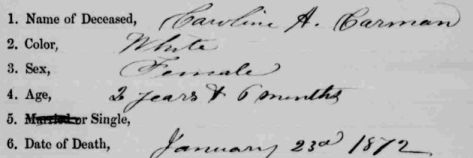 1. Name of Deceased, Caroline A. Carman
2. Color, White
3. Sex, Female
4. Age, 2 years & 6 months
5. Married or Single,
6. Date of Death, January 23d 1872